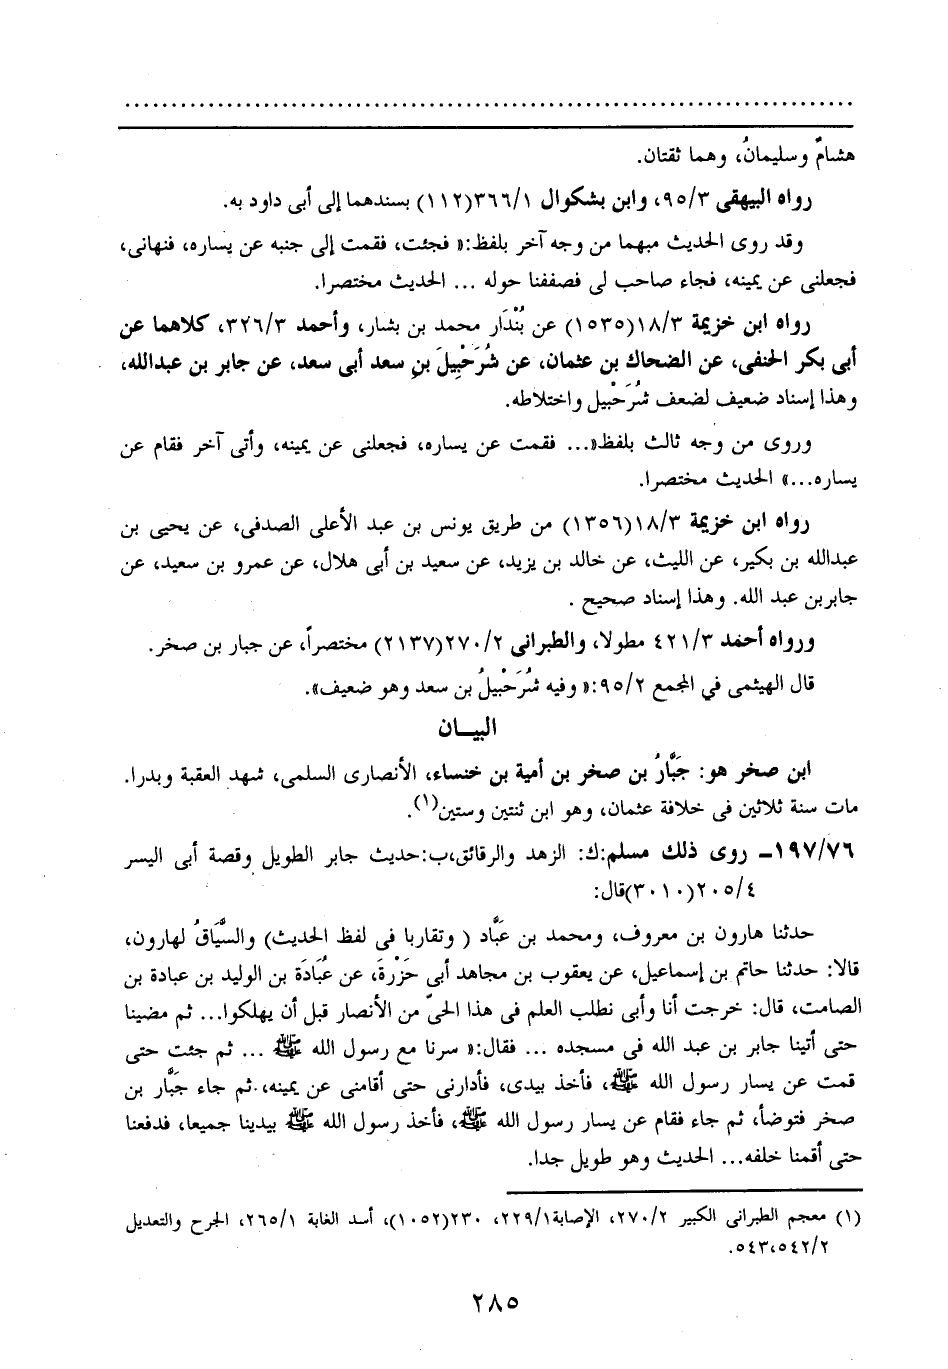 هشامٌ وسليمانُ، وهما ثقتان.
رواه البيهقى ٩٥/٣، وابن بشكوال ٣٦٦/١(١١٢) بسندهما إلى أبى داود به.
وقد روى الحديث مبهما من وجه آخر بلفظ:« فجئت، فقمت إلى جنبه عن يساره، فنهانى،
فجعلنى عن يمينه، فجاء صاحب لى فصففنا حوله ... الحديث مختصرا.
رواه ابن خزيمة ١٨/٣(١٥٣٥) عن بُنْدَار محمد بن بشار، وأحمد ٣٢٦/٣، كلاهما عن
أبى بكر الحنفى، عن الضحاك بن عثمان، عن شُرَحْبِيلَ بنِ سعد أبى سعد، عن جابر بن عبدالله،
وهذا إسناد ضعيف لضعف شُرَحْبيل واختلاطه.
وروى من وجه ثالث بلفظ«... فقمت عن يساره، فجعلنى عن يمينه، وأتى آخر فقام عن
يساره...» الحديث مختصرا.
رواه ابن خزيمة ١٨/٣(١٣٥٦) من طريق يونس بن عبد الأعلى الصدفى، عن يحيى بن
عبدالله بن بكير، عن الليث، عن خالد بن يزيد، عن سعيد بن أبى هلال، عن عمرو بن سعيد، عن
جابربن عبد الله. وهذا إسناد صحيح .
ورواه أحمد ٤٢١/٣ مطولا، والطبرانى ٢٧٠/٢(٢١٣٧) مختصراً، عن جبار بن صخر.
قال الهيثمى في المجمع ٩٥/٢:« وفيه شُرَحْبيلُ بن سعد وهو ضعيف».
البيــان
ابن صخر هو: جَبَّارُ بن صخر بن أمية بن خنساء، الأنصارى السلمى، شهد العقبة وبدرا.
مات سنة ثلاثين فى خلافة عثمان، وهو ابن ثنتين وستين(١).
١٩٧/٧٦ـ روى ذلك مسلم:ك: الزهد والرقائق،ب:حديث جابر الطويل وقصة أبى اليسر
٢٠٥/٤(٣٠١٠)قال:
حدثنا هارون بن معروف، ومحمد بن عَبَّاد ( وتقاربا فى لفظ الحديث) والسَّيَاقُ لهارون،
قالا: حدثنا حاتم بن إسماعيل، عن يعقوب بن مجاهد أبى حَزْرةَ، عن عُبَادَة بن الوليد بن عبادة بن
الصامت، قال: خرجت أنا وأبى نطلب العلم فى هذا الحىّ من الأنصار قبل أن يهلكوا... ثم مضينا
حتى أتينا جابر بن عبد الله فى مسجده ... فقال:« سرنا مع رسول الله ﷺ ... ثم جئت حتى
قمت عن يسار رسول الله ﷺ، فأخذ بيدى، فأدارنى حتى أقامنى عن يمينه، ثم جاء جَبَّار بن
صخر فتوضأ، ثم جاء فقام عن يسار رسول الله ﷺ، فأخذ رسول الله ﷺ بيدينا جميعا، فدفعنا
حتى أقمنا خلفه... الحديث وهو طويل جدا.
(١) معجم الطبرانى الكبير ٢٧٠/٢، الإصابة٢٢٩/١، ٢٣٠(١٠٥٢)، أسد الغابة ٢٦٥/١، الجرح والتعديل
٥٤٣،٥٤٢/٢.
٢٨٥